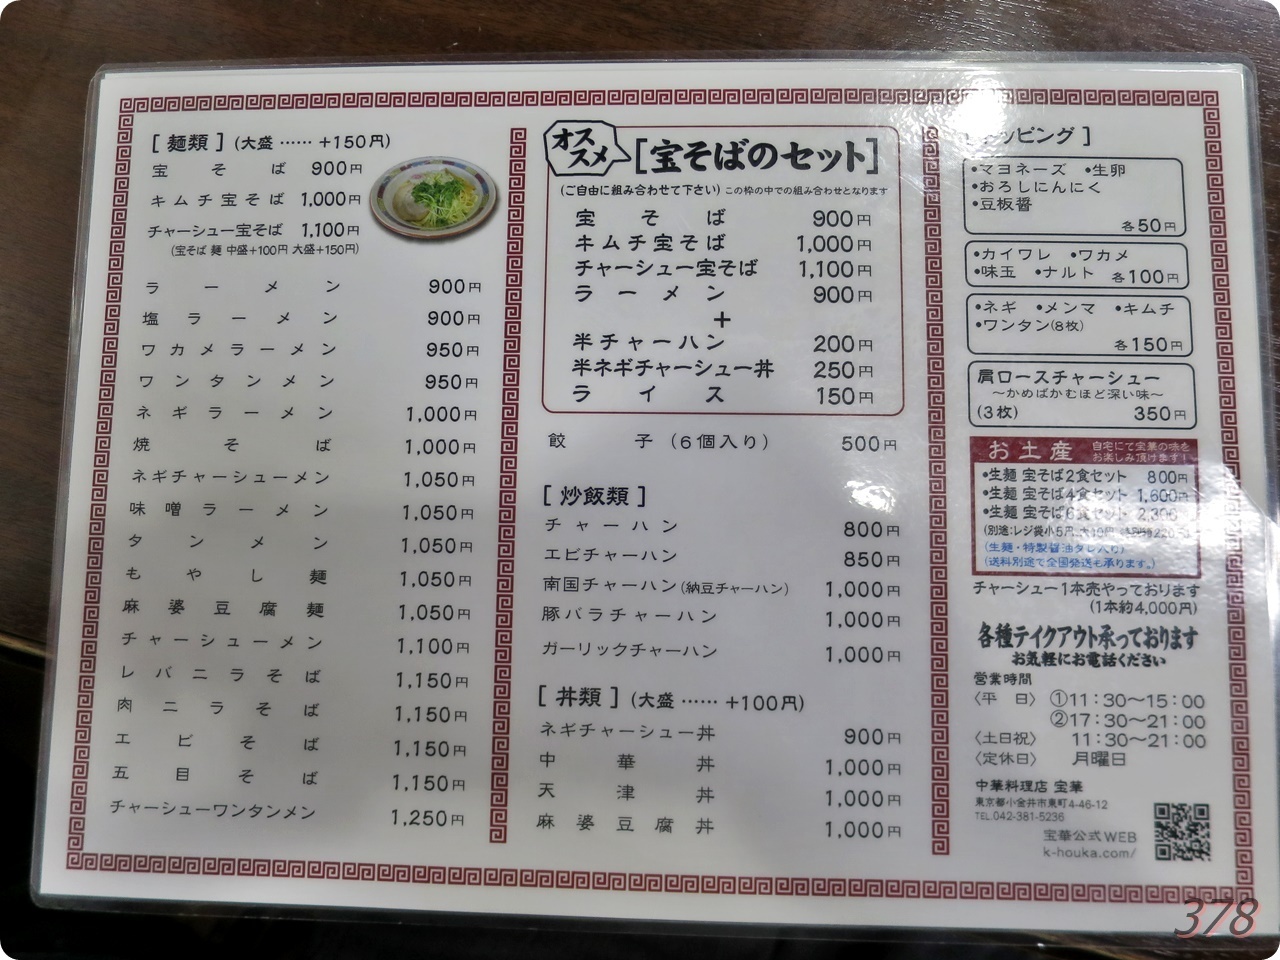 [ 麺類 ] (大盛 …… +150円)
宝そば 900円
キムチ宝そば 1,000円
チャーシュー宝そば 1,100円
(宝そば 麺 中盛+100円 大盛+150円)
ラーメン 900円
塩ラーメン 900円
ワカメラーメン 950円
ワンタンメン 950円
ネギラーメン 1,000円
焼そば 1,000円
ネギチャーシューメン 1,050円
味噌ラーメン 1,050円
タンメン 1,050円
もやし麺 1,050円
麻婆豆腐麺 1,050円
チャーシューメン 1,100円
レバニラそば 1,150円
肉ニラそば 1,150円
エビそば 1,150円
五目そば 1,150円
チャーシューワンタンメン 1,250円
オススメ
[宝そばのセット]
(ご自由に組み合わせて下さい) この枠の中での組み合わせとなります
宝そば 900円
キムチ宝そば 1,000円
チャーシュー宝そば 1,100円
ラーメン 900円
+
半チャーハン 200円
半ネギチャーシュー丼 250円
ライス 150円
餃子 (6個入り) 500円
[ 炒飯類 ]
チャーハン 800円
エビチャーハン 850円
南国チャーハン(納豆チャーハン) 1,000円
豚バラチャーハン 1,000円
ガーリックチャーハン 1,000円
[ 丼類 ] (大盛 …… +100円)
ネギチャーシュー丼 900円
中華丼 1,000円
天津丼 1,000円
麻婆豆腐丼 1,000円
ッピング ]
•マヨネーズ •生卵
•おろしにんにく
•豆板醤
各50円
•カイワレ •ワカメ
•味玉 •ナルト 各100円
•ネギ •メンマ •キムチ
•ワンタン(8枚)
各150円
肩ロースチャーシュー
〜かめばかむほど深い味〜
(3枚) 350円
お土産 自宅にて宝華の味をお楽しみ頂けます!
•生麺 宝そば2食セット 800円
•生麺 宝そば4食セット 1,600円
•生麺 宝そば6食セット 2,300
(別途:レジ袋小5円
(生麺・特製醤油タレ入り)
(送料別途で全国発送も承ります。)
チャーシュー1本売やっております
(1本約4,000円)
各種テイクアウト承っております
お気軽にお電話ください
営業時間
〈平 日〉 ①11:30〜15:00
②17:30〜21:00
〈土日祝〉 11:30〜21:00
〈定休日〉 月曜日
中華料理店 宝華
東京都小金井市東町4-46-12
TEL.042-381-5236
宝華公式WEB
k-houka.com/
378